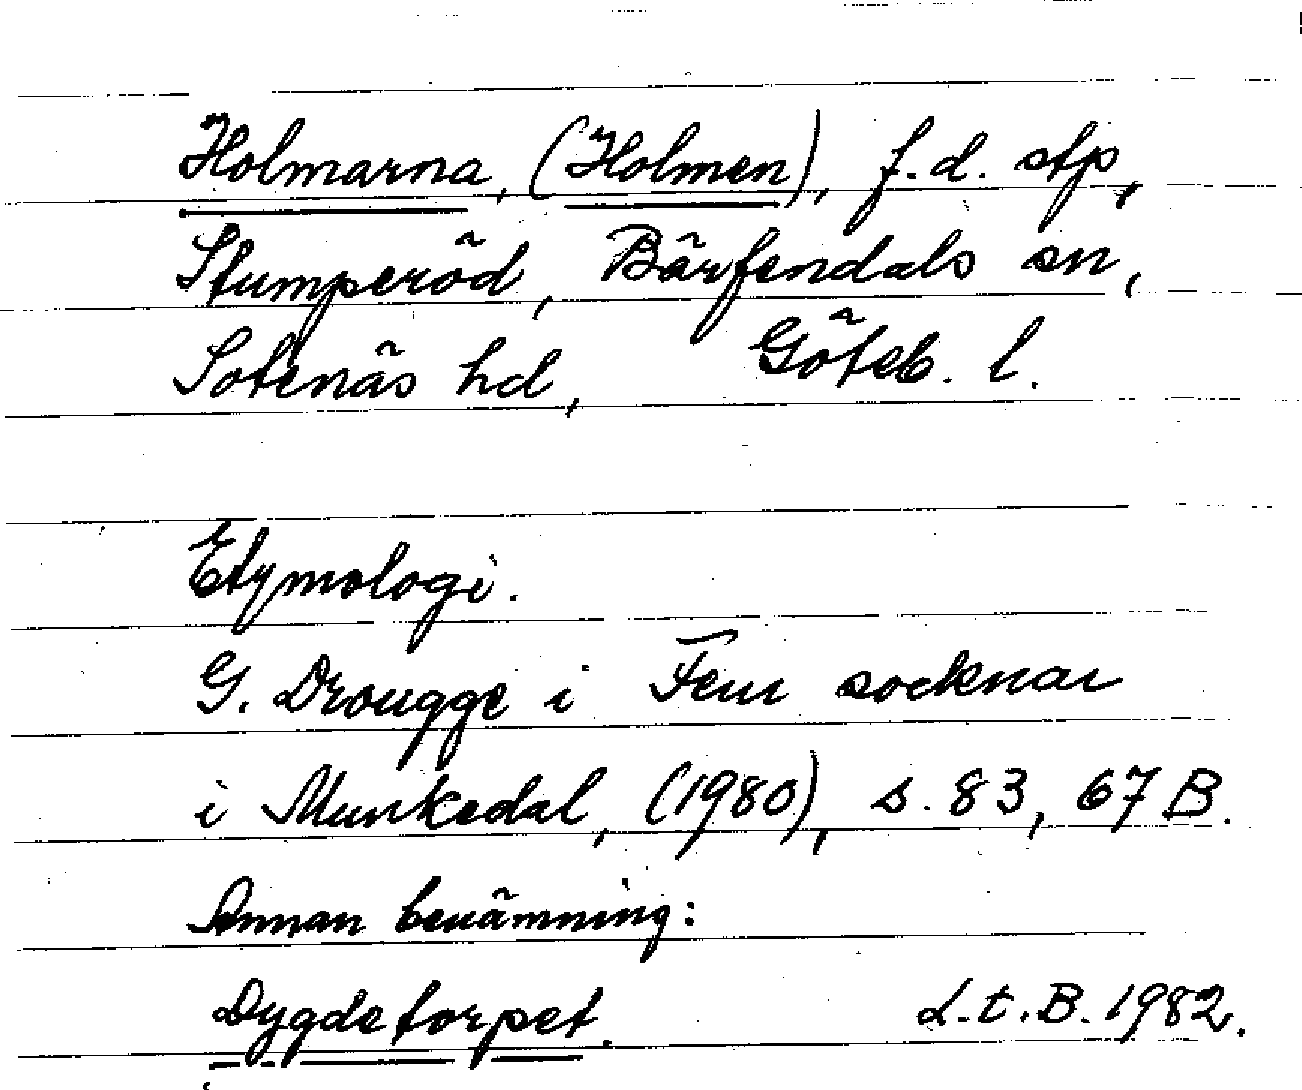 Holmarna, (Holmen), f.d. stp,
Stumperöd, Bärfendals sn,
Sotenäs hd, Göteb. l.
Etymologi.
G. Drougge i Fem socknar
i Munkedal, (1980), s. 83, 67 B.
Annan benämning:
Dygdetorpet. L.t.B. 1982.